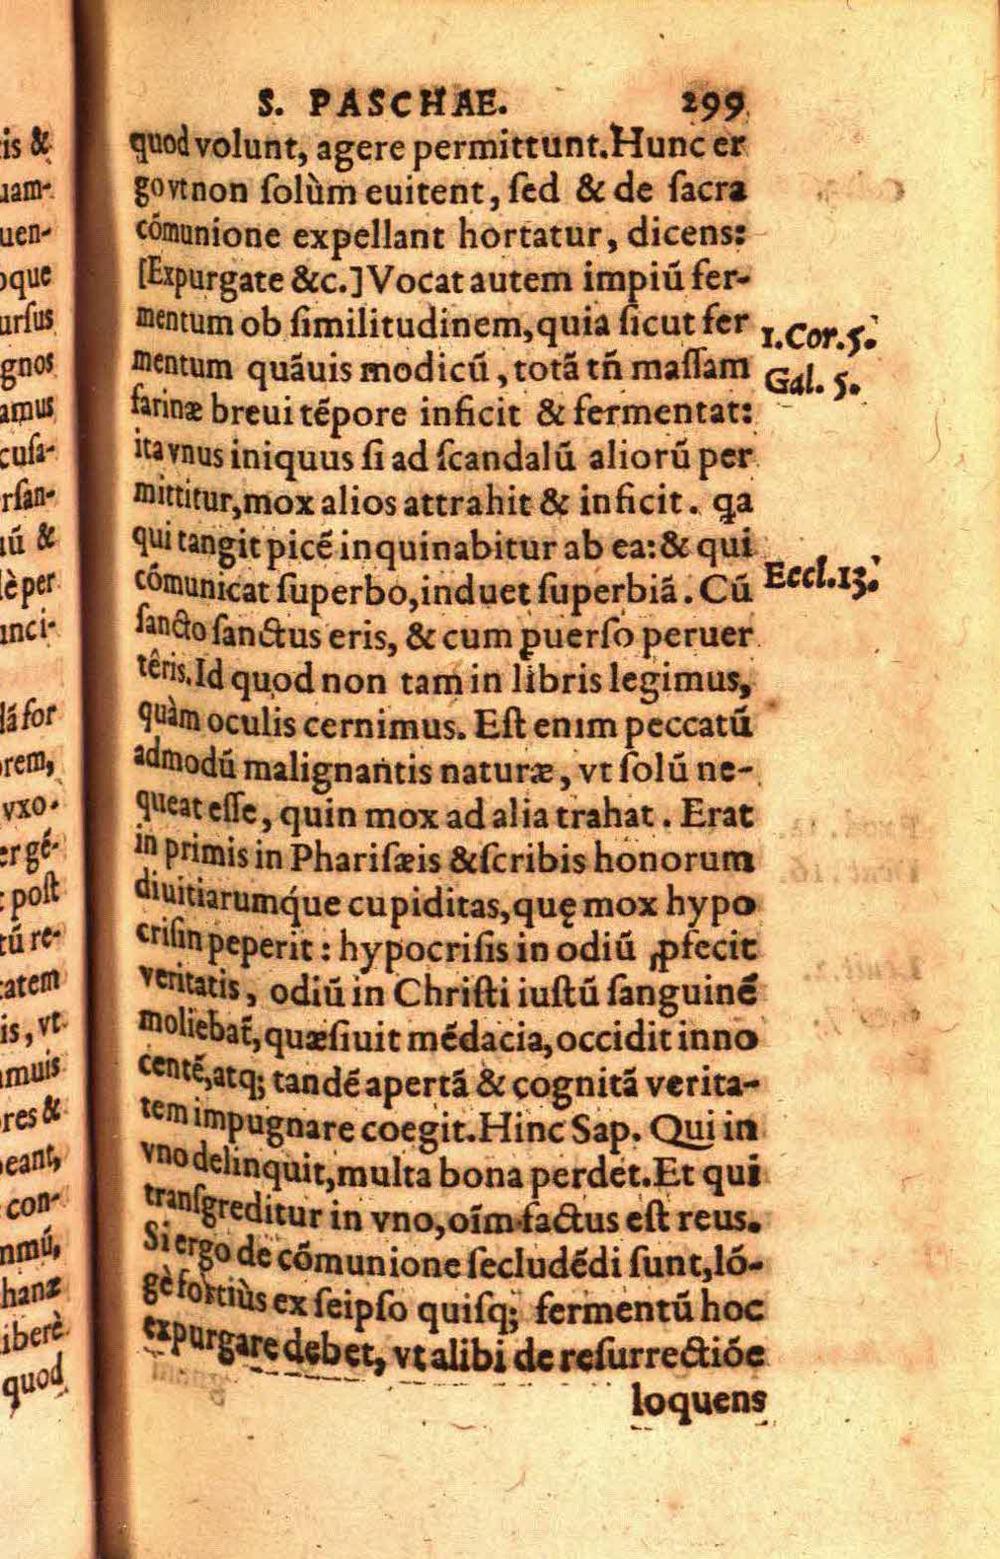 S. PASCHAE. 299
quod volunt, agere permittunt. Hunc er
go vt non ſolùm euitent, ſed & de ſacra
cõmunione expellant hortatur, dicens:
[Expurgate &c.] Vocat autem impiũ fer-
mentum ob ſimilitudinem, quia ſicut fer
1. Cor. 5.
mentum quãuis modicũ, totã tñ maſſam
Gal. 5.
farinæ breui tẽpore inficit & fermentat:
ita vnus iniquus ſi ad ſcandalũ aliorũ per
mittitur, mox alios attrahit & inficit. ꝗa
qui tangit picẽ inquinabitur ab ea: & qui
cõmunicat ſuperbo, induet ſuperbiã. Cũ
Eccl. 13.
ſancto ſanctus eris, & cum ꝑuerſo peruer
têris. Id quod non tam in libris legimus,
quàm oculis cernimus. Eſt enim peccatũ
admodũ malignantis naturæ, vt ſolũ ne-
queat eſſe, quin mox ad alia trahat. Erat
in primis in Phariſæis & ſcribis honorum
diuitiarumq́ue cupiditas, quę mox hypo
criſin peperit: hypocriſis in odiũ ꝓfecit
veritatis, odiũ in Chriſti iuſtũ ſanguinẽ
moliebat̃, quæſiuit mẽdacia, occidit inno
centẽ, atq; tandẽ apertã & cognitã verita-
tem impugnare coegit. Hinc Sap. Qui in
vno delinquit, multa bona perdet. Et qui
tranſgreditur in vno, oĩm factus eſt reus.
Si ergo de cõmunione ſecludẽdi ſunt, lõ-
gè fortiùs ex ſeipſo quiſq; fermentũ hoc
expurgare debet, vt alibi de reſurrectiõe
loquens
is &
uam-
uen-
oque
urſus
gnos
amus
cuſa-
rſan-
iũ &
lè per
inci-
lã for
rem,
vxo-
er gẽ-
poſt
tũ re-
tatem
is, vt
amuis
res &
eant,
con-
nmũ,
hanæ
iberè
quod